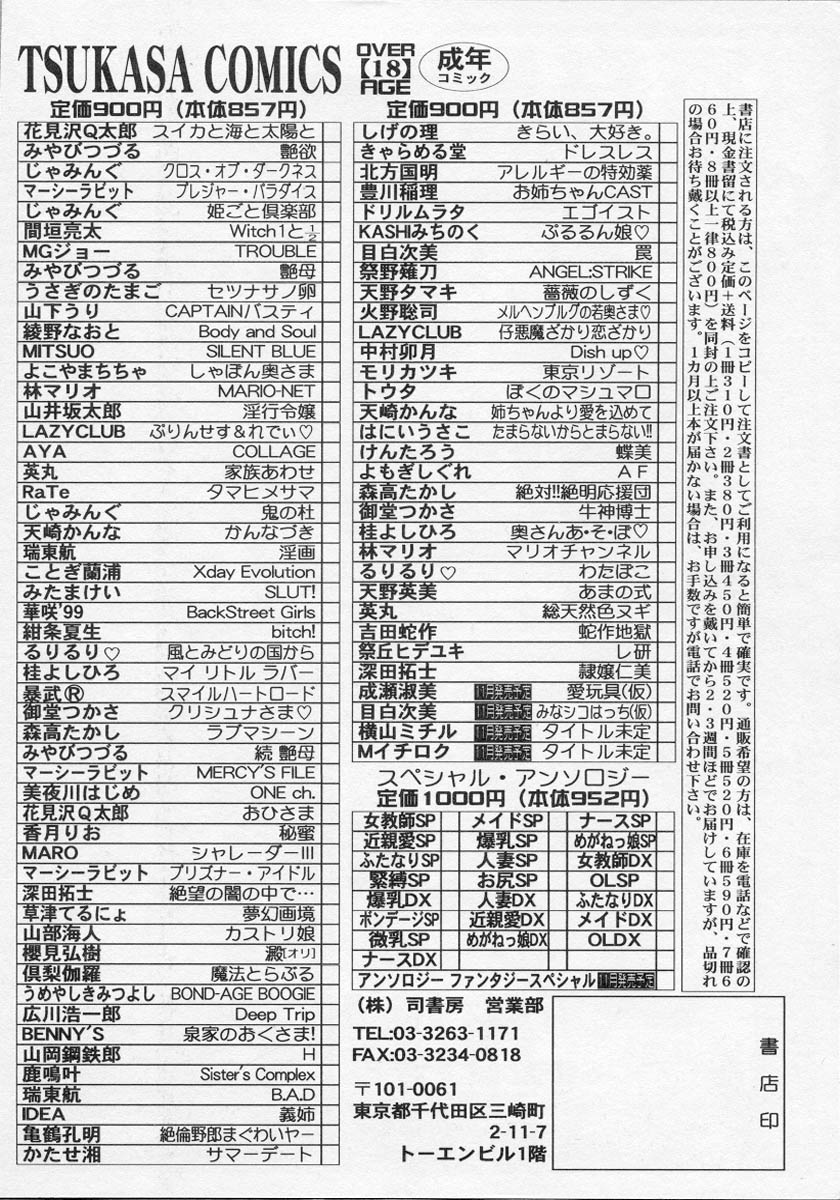 TSUKASA COMICS
OVER
【18】
AGE
成年
コミック
定価900円（本体857円）
花見沢Q太郎 スイカと海と太陽と
みやびつづる 艶欲
じゃみんぐ クロス・オブ・ダークネス
マーシーラビット プレジャー・パラダイス
じゃみんぐ 姫ごと倶楽部
間垣亮太 Witch1と½
MGジョー TROUBLE
みやびつづる 艶母
うさぎのたまご セツナサノ卵
山下うり CAPTAINバスティ
綾野なおと Body and Soul
MITSUO SILENT BLUE
よこやまちちゃ しゃぼん奥さま
林マリオ MARIO-NET
山井坂太郎 淫行令嬢
LAZYCLUB ぷりんせす&れでぃ♡
AYA COLLAGE
英丸 家族あわせ
RaTe タマヒメサマ
じゃみんぐ 鬼の杜
天崎かんな かんなづき
瑞東航 淫画
ことぎ蘭浦 Xday Evolution
みたまけい SLUT!
華咲'99 BackStreet Girls
紺条夏生 bitch!
るりるり♡ 風とみどりの国から
桂よしひろ マイ リトル ラバー
暴武Ⓡ スマイルハートロード
御堂つかさ クリシュナさま♡
森高たかし ラブマシーン
みやびつづる 続 艶母
マーシーラビット MERCY'S FILE
美夜川はじめ ONE ch.
花見沢Q太郎 おひさま
香月りお 秘蜜
MARO シャレーダーIII
マーシーラビット プリズナー・アイドル
深田拓士 絶望の闇の中で…
草津てるにょ 夢幻画境
山部海人 カストリ娘
櫻見弘樹 澱[オリ]
倶梨伽羅 魔法とらぶる
うめやしきみつよし BOND-AGE BOOGIE
広川浩一郎 Deep Trip
BENNY'S 泉家のおくさま!
山岡鋼鉄郎 H
鹿鳴叶 Sister's Complex
瑞東航 B.A.D
IDEA 義姉
亀鶴孔明 絶倫野郎まぐわいヤー
かたせ湘 サマーデート
定価900円（本体857円）
しげの理 きらい、大好き。
きゃらめる堂 ドレスレス
北方国明 アレルギーの特効薬
豊川稲理 お姉ちゃんCAST
ドリルムラタ エゴイスト
KASHIみちのく ぷるるん娘♡
目白次美 罠
祭野薙刀 ANGEL:STRIKE
天野タマキ 薔薇のしずく
火野聡司 メルヘンブルグの若奥さま♡
LAZYCLUB 仔悪魔ざかり恋ざかり
中村卯月 Dish up♡
モリカツキ 東京リゾート
トウタ ぼくのマシュマロ
天崎かんな 姉ちゃんより愛を込めて
はにいうさこ たまらないからとまらない!!
けんたろう 蝶美
よもぎしぐれ AF
森高たかし 絶対!!絶明応援団
御堂つかさ 牛神博士
桂よしひろ 奥さんあ・そ・ぼ♡
林マリオ マリオチャンネル
るりるり♡ わたぽこ
天野英美 あまの式
英丸 総天然色ヌギ
吉田蛇作 蛇作地獄
祭丘ヒデユキ し研
深田拓士 隷嬢仁美
成瀬淑美 11月発売予定 愛玩具(仮)
目白次美 11月発売予定 みなシコはっち(仮)
横山ミチル 11月発売予定 タイトル未定
Mイチロク 11月発売予定 タイトル未定
スペシャル・アンソロジー
定価1000円（本体952円）
女教師SP メイドSP ナースSP
近親愛SP 爆乳SP めがねっ娘SP
ふたなりSP 人妻SP 女教師DX
緊縛SP お尻SP OLSP
爆乳DX 人妻DX ふたなりDX
ボンデージSP 近親愛DX メイドDX
微乳SP めがねっ娘DX OLDX
ナースDX
アンソロジー ファンタジースペシャル 11月発売予定
（株）司書房 営業部
TEL:03-3263-1171
FAX:03-3234-0818
〒101-0061
東京都千代田区三崎町
2-11-7
トーエンビル1階
書店印
書店に注文される方は、このページをコピーして注文書としてご利用になると簡単で確実です。通販希望の方は、在庫を電話などで確認の
上、現金書留にて税込み定価+送料（1冊310円・2冊380円・3冊450円・4冊520円・5冊520円・6冊590円・7冊6
60円・8冊以上一律800円）を同封の上ご注文下さい。また、お申し込みを戴いてから2・3週間ほどでお届けしていますが、品切れ
の場合お待ち戴くことがございます。1カ月以上本が届かない場合は、お手数ですが電話でお問い合わせ下さい。